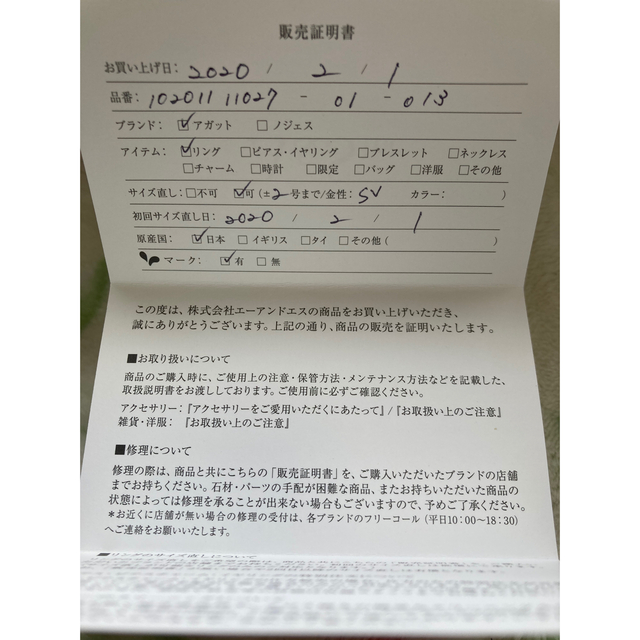 販売証明書
お買い上げ日: 2020 / 2 / 1
品番: 102011 11027 - 01 - 013
ブランド: ☑アガット ☐ノジェス
アイテム: ☑リング ☐ピアス・イヤリング ☐ブレスレット ☐ネックレス
☐チャーム ☐時計 ☐限定 ☐バッグ ☐洋服 ☐その他
サイズ直し: ☐不可 ☑可(±2号まで/金性: SV カラー: )
初回サイズ直し日: 2020 / 2 / 1
原産国: ☑日本 ☐イギリス ☐タイ ☐その他( )
マーク: ☑有 ☐無
この度は、株式会社エーアンドエスの商品をお買い上げいただき、
誠にありがとうございます。上記の通り、商品の販売を証明いたします。
■お取り扱いについて
商品のご購入時に、ご使用上の注意・保管方法・メンテナンス方法などを記載した、
取扱説明書をお渡ししております。ご使用前に必ずご確認ください。
アクセサリー:『アクセサリーをご愛用いただくにあたって』/『お取扱い上のご注意』
雑貨・洋服: 『お取扱い上のご注意』
■修理について
修理の際は、商品と共にこちらの「販売証明書」を、ご購入いただいたブランドの店舗
までお持ちください。石材・パーツの手配が困難な商品、またお持ちいただいた商品の
状態によっては修理を承ることが出来ない場合もございますので、予めご了承ください。
*お近くに店舗が無い場合の修理の受付は、各ブランドのフリーコール(平日10:00〜18:30)
へご連絡をお願いいたします。
■リングのサイズ直しについて